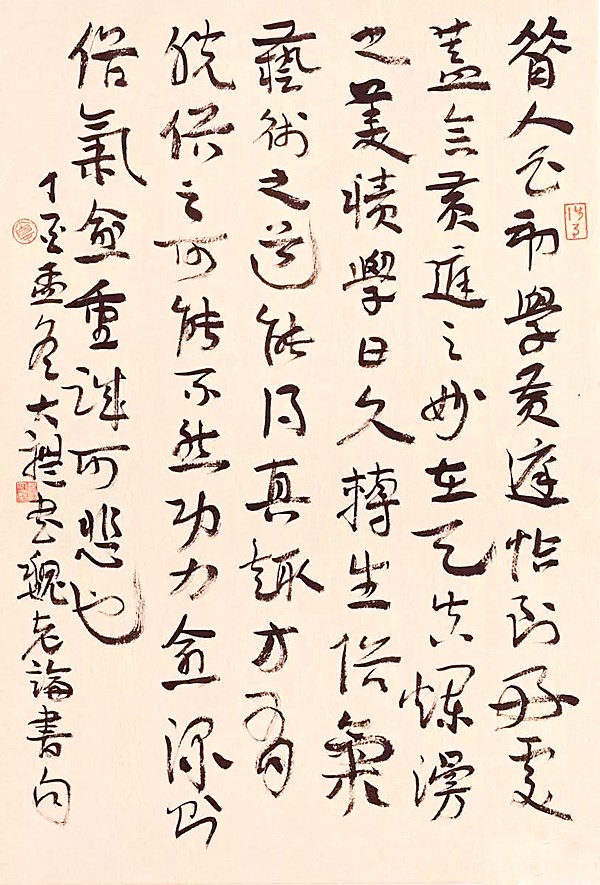 昔人云初學黃庭恰到好處
蓋言黃庭之妙在天真爛漫
之美積學日久轉生俗氣
藝術之道能得真趣方有
脫俗之可能不然功力愈深則
俗氣愈重誠可悲也
丁酉孟冬大禮書魏老論書句